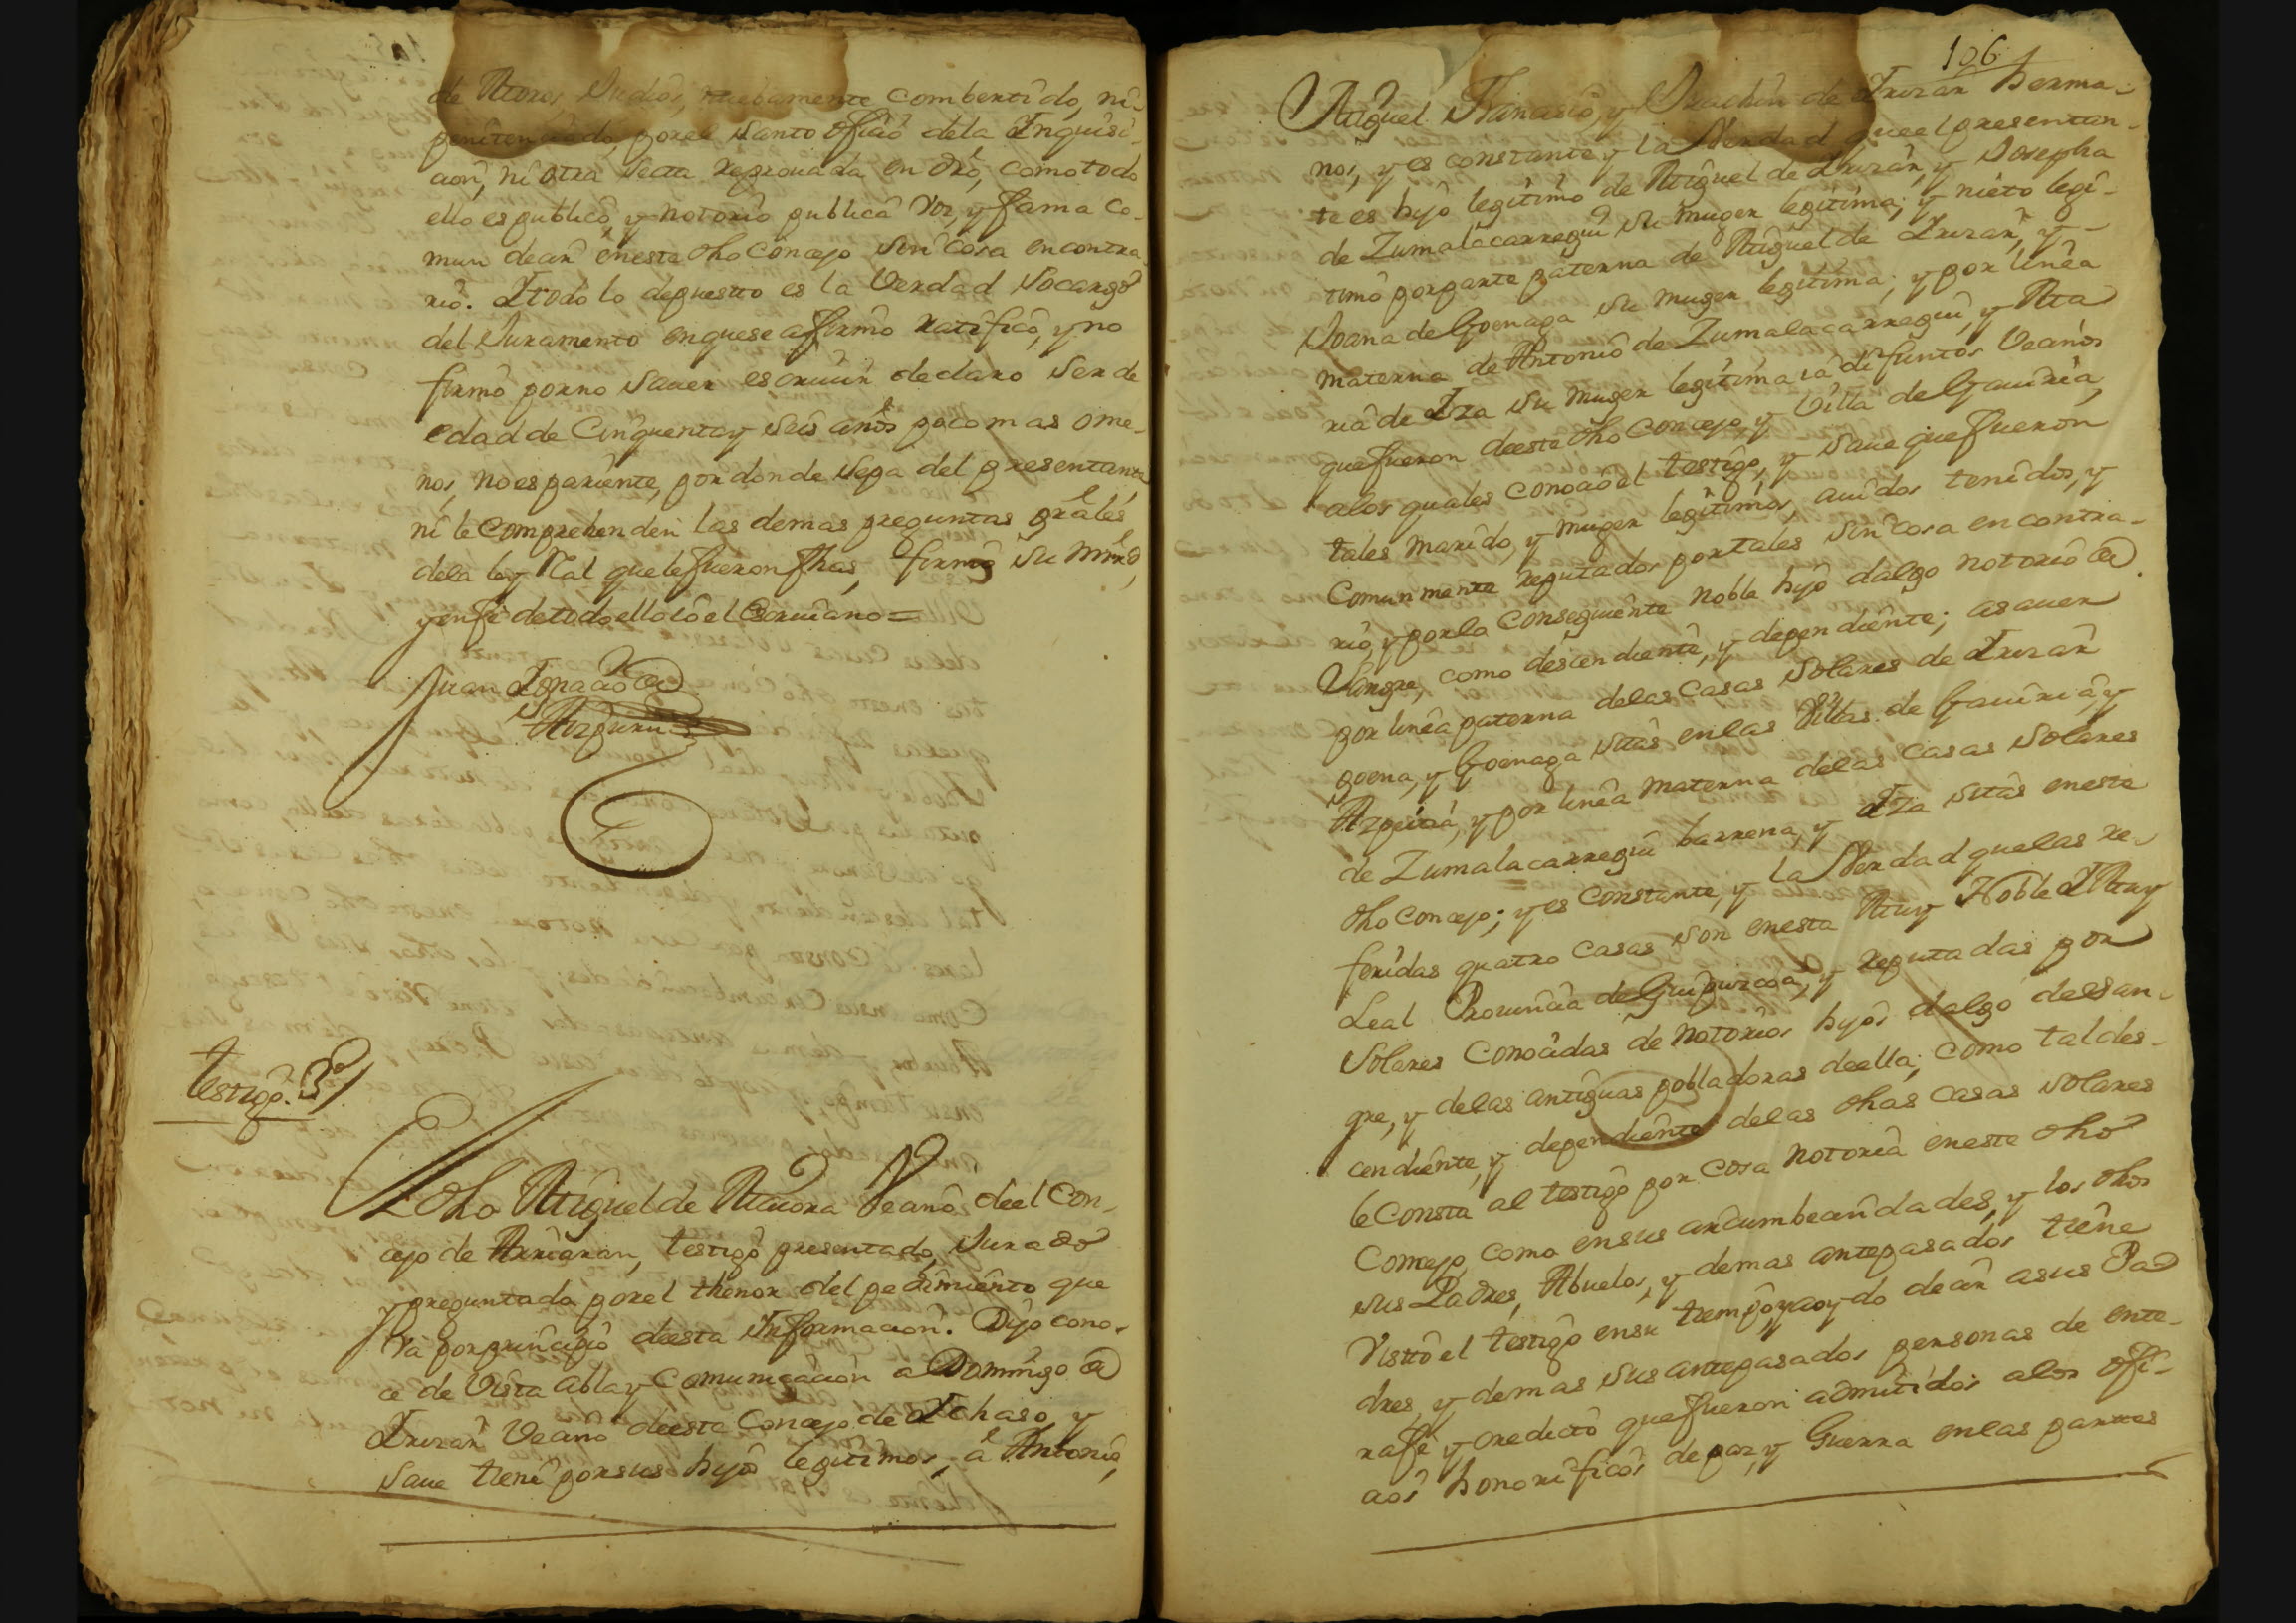 de Moros, Judios, nuebamente combertido, ni
penitenciado, porel Santo Oficio dela Inquisi-
cion, ni otra Secta reprouada en dro, como todo
ello es publico y notorio publica voz, y fama co-
mun dear eneste dho Concejo sin cosa en contra
rio. I todo lo depuesto es la Verdad so cargo
del Juramento enquese afirmo ratifico, y no
firmo porno sauer escriuir declaro ser de
edad de Cinquenta y seis años poco mas ome-
nos, no es pariente, por donde sepa del presentante
ni le Comprehenden las demas preguntas grales
dela ley Real que le fueron fhas, firmo su mrd,
y enfe de todo ello io el Escriuano =
Juan Ignacio de
Aizpuru
testigo. 3º
El dho Miguel de Veçino deel Con-
cejo de Arriaran, testigo presentado, Jurado
y preguntado porel thenor del pedimiento que
va porprincipio deesta Informacion. Dijo cono-
ce de Vista abla y Comunicacion a Domingo de
Irizar Veçino deeste Concejo de Ichaso, y
saue tiene porsus hijos legitimos, a Antonio,
106
Miguel Ignacio, y Joachin de Irizar herma-
nos, y es constante y la Verdad queel presentan-
te es hijo legitimo de Miguel de Irizar, y Josepha
de Zumalacarregui su muger legitima; y nieto legi-
timo porparte paterna de Miguel de Irizar, y
Joana de Goenaga su muger legitima; y por linea
materna de Antonio de Zumalacarregui, y Ma
ria de Iza su muger legitima ia difuntos Veçinos
que fueron deeste dho Concejo, y Villa de Gauiria,
alos quales conocio el testigo, y saue que fueron
tales marido, y muger legitimos, auidos tenidos, y
Comunmente reputados portales sin cosa en contra-
rio, y porlo Consequente noble hijo dalgo notorio de
Sangre, como descendiente, y dependiente; asauer
por linea paterna delas Casas Solares de Irizar
goena, y Goenaga sitas enlas Villas de Gauiria, y
Azpeitia, y por linea materna delas casas solares
de Zumalacarregui barrena, y Iza sitas eneste
dho Concejo; y es Constante, y la Verdad quelas re-
feridas quatro Casas son enesta Muy Noble I Muy
Leal Prouincia de Guipuzcoa, y reputadas por
Solares Conocidas de notorios hijos dalgo delsan-
gre, y delas antiguas pobladoras deella; como tal des-
cendiente, y dependiente delas dhas Casas Solares
le Consta al testigo por cosa notoria eneste dho
Concejo, como ensus circumbecindades, y los dhos
sus Padres, Abuelos, y demas antepasados tiene
Visto el testigo ensu tiempo, y aoydo dear asus Pa
dres, y demas sus antepasados personas de ente-
ra fe y credicto que fueron admitidos alos ofi-
cios honorificos de paz, y Guerra enlas partes